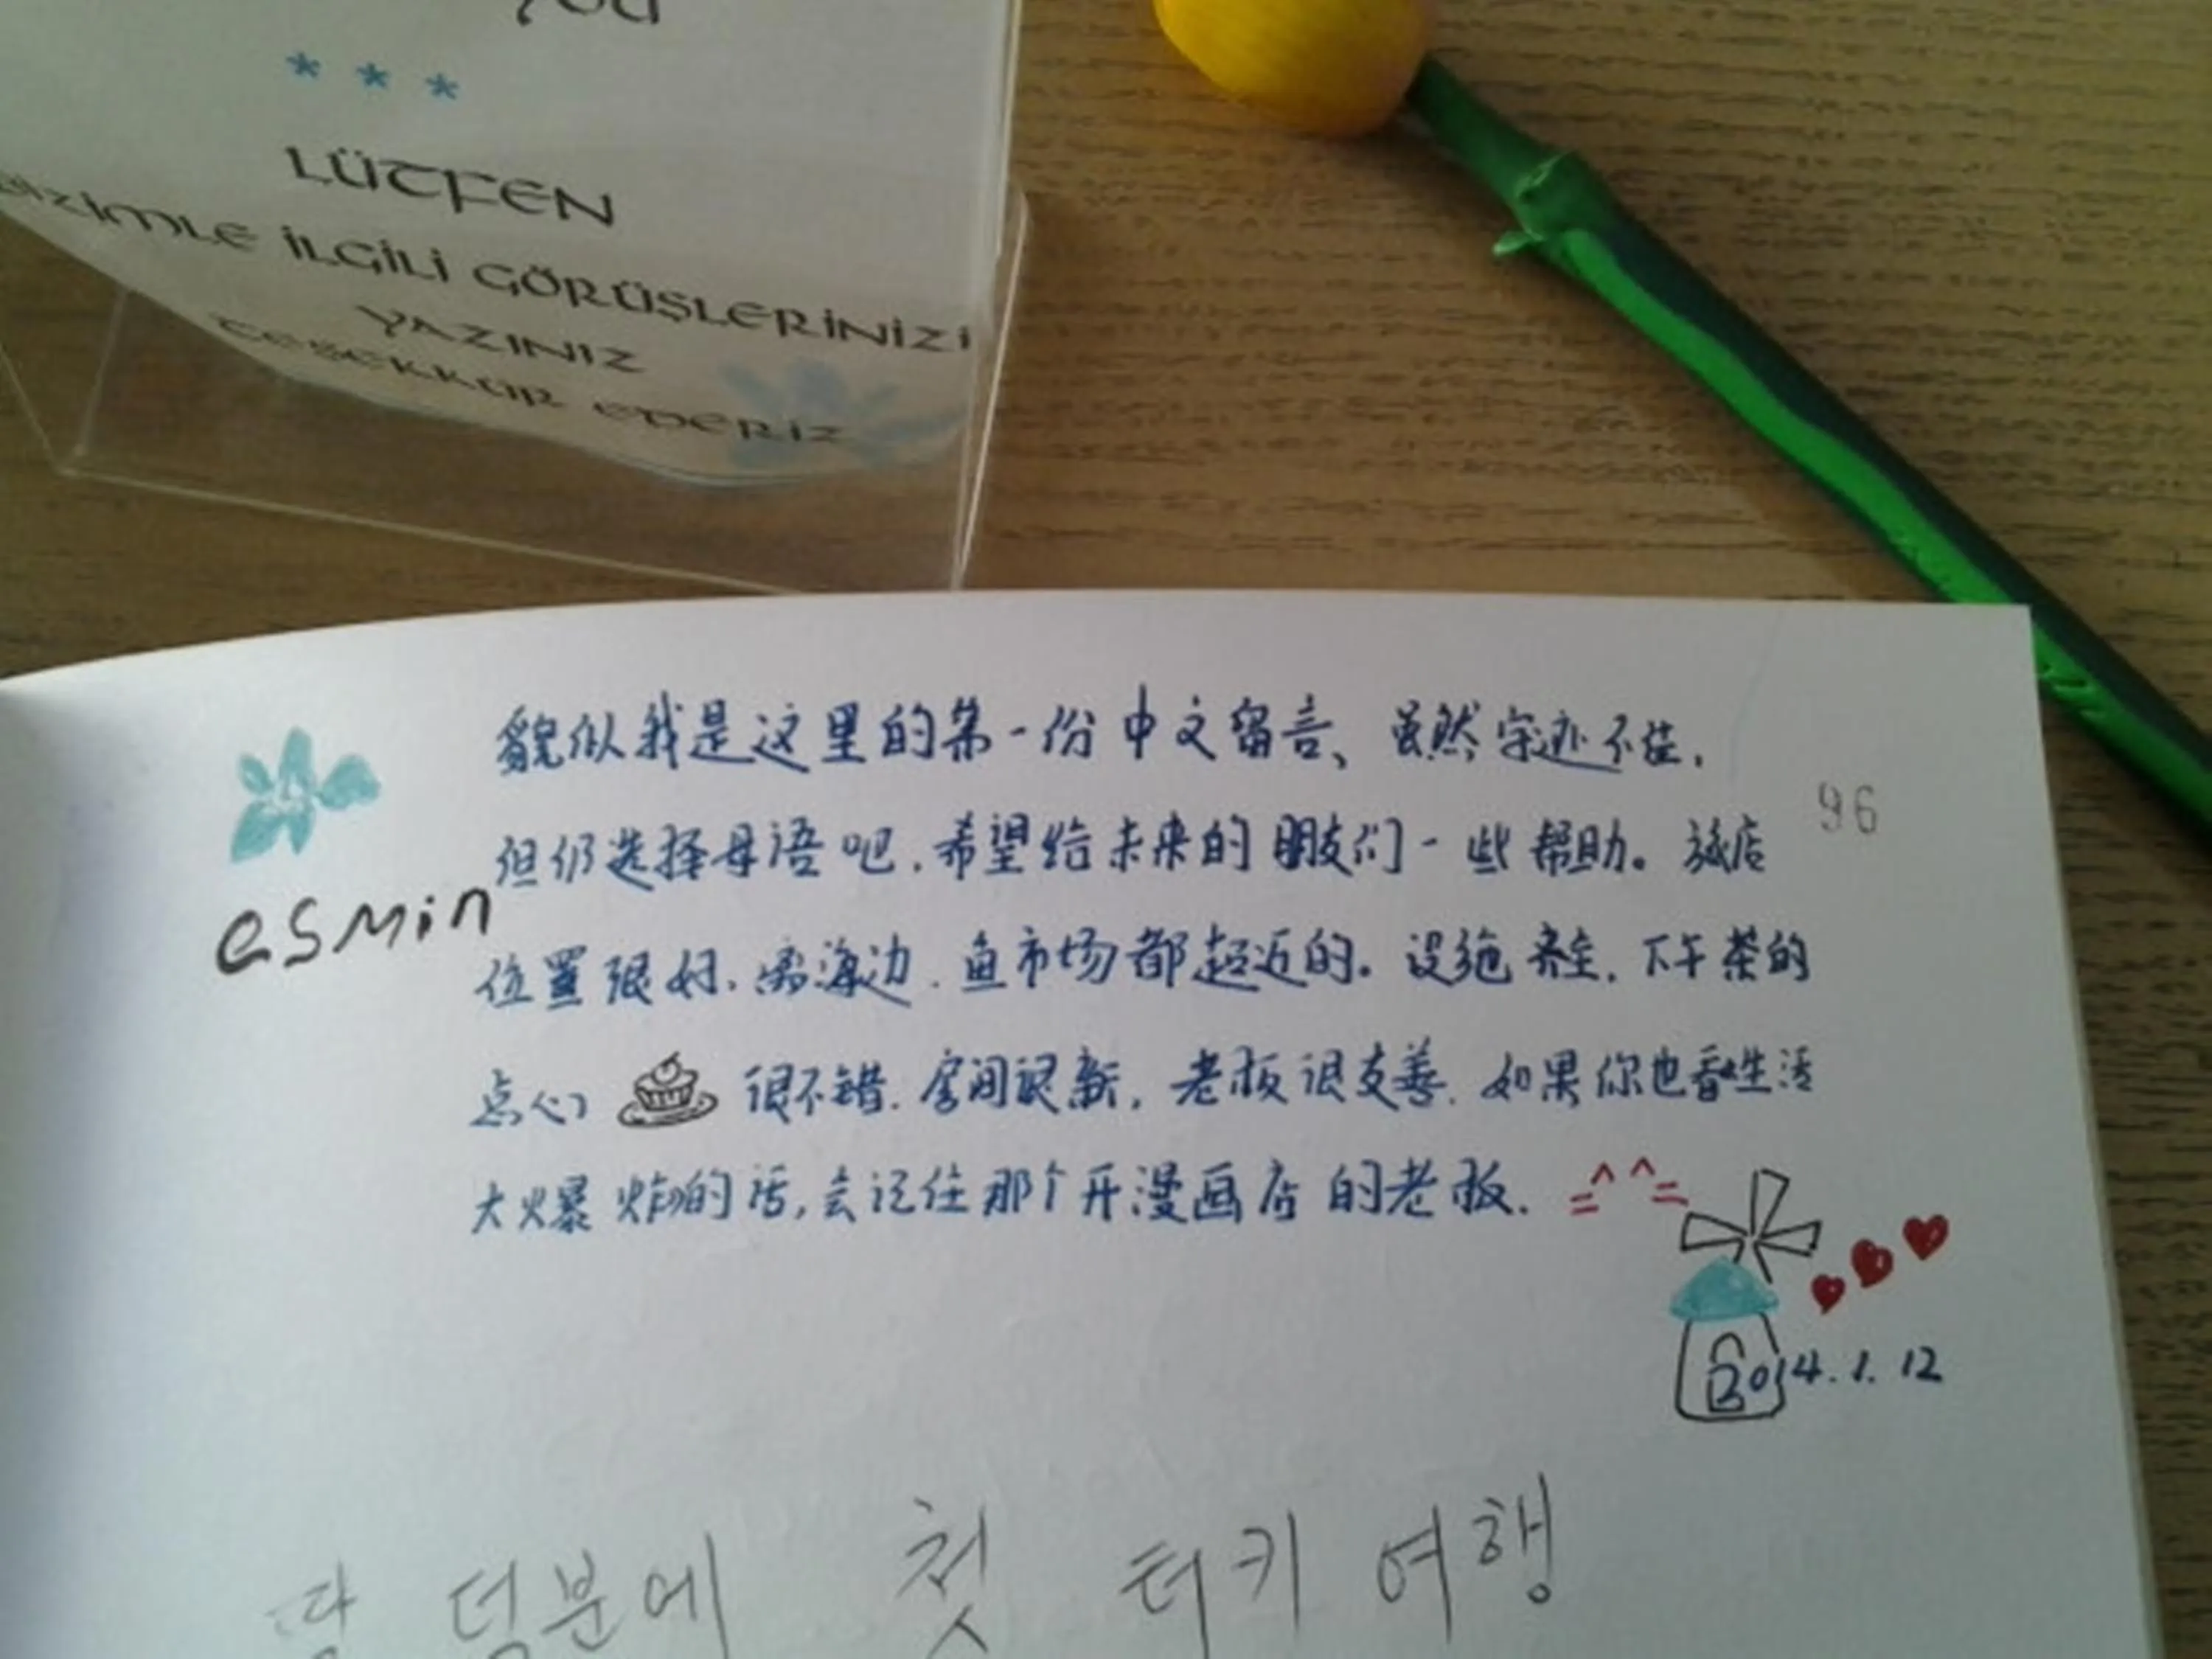 you
* * *
LÜTFEN
BİZİMLE İLGİLİ GÖRÜŞLERİNİZİ
YAZINIZ
TEŞEKKÜR EDERİZ
貌似我是这里的第一份中文留言、虽然字迹不佳,
96
但仍选择母语吧,希望给未来的朋友们一些帮助。旅店
esmin
位置很好、离海边、鱼市场都超近的。设施齐全,下午茶的
点心 很不错.房间很新,老板很友善.如果你也看生活
大火暴炸的话,会记住那个开漫画店的老板. =^ ^=
2014.1.12
딸 덕분에 첫 터키 여행